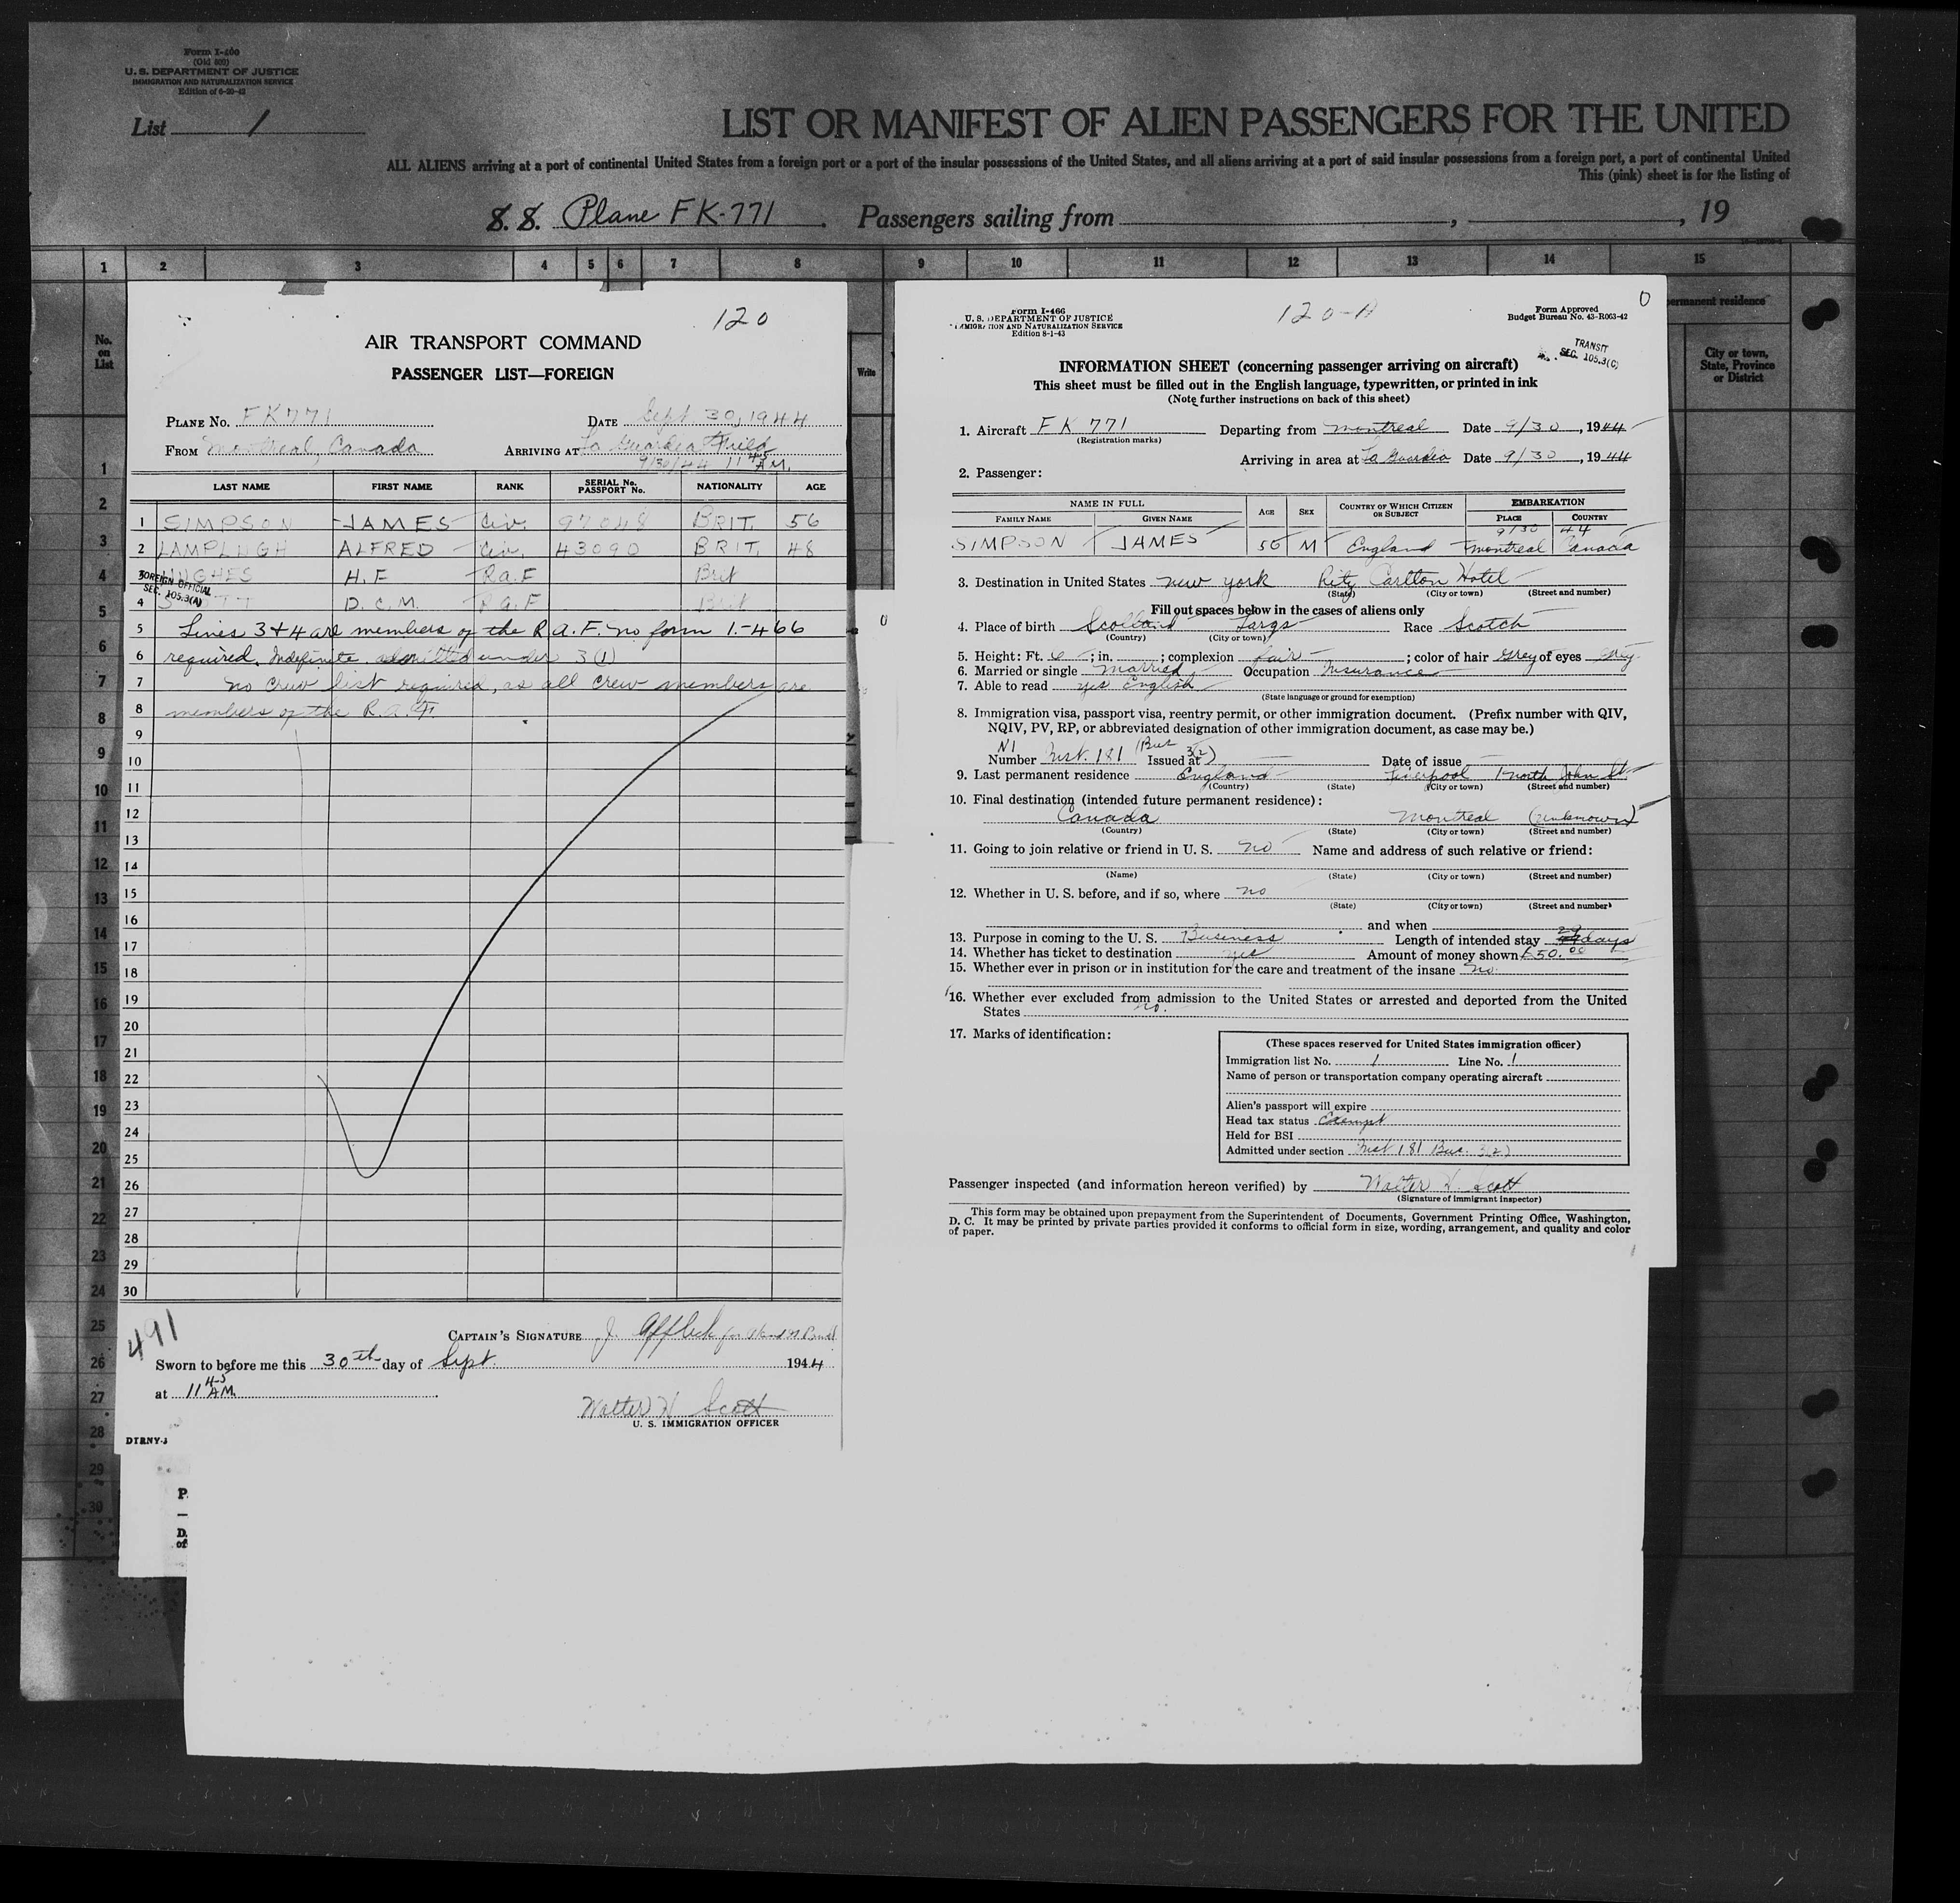 Form I-460
(Old 500)
U. S. DEPARTMENT OF JUSTICE
IMMIGRATION AND NATURALIZATION SERVICE
List 1
LIST OR MANIFEST OF ALIEN PASSENGERS FOR THE UNITED
ALL ALIENS arriving at a port of continental United States from a foreign port or a port of the insular possessions of the United States, and all aliens arriving at a port of said insular possessions from a foreign port, a port of continental United
This (pink) sheet is for the listing of
S. S. Plane FK-771 . Passengers sailing from , , 19
1 2 3 4 5 6 7 8 9 10 11 12 13 14 15
No. on List
Write
permanent residence
City or town, State, Province or District
1
2
3
4
5
6
7
8
9
10
11
12
13
14
15
16
17
18
19
20
21
22
23
24
25
26
27
28
29
30
120
AIR TRANSPORT COMMAND
PASSENGER LIST—FOREIGN
PLANE No. FK771 DATE Sept. 30, 1944
FROM Montreal, Canada ARRIVING AT La Guardia Field
9/30/44 11 45 A.M.
LAST NAME FIRST NAME RANK SERIAL No. PASSPORT No. NATIONALITY AGE
1 SIMPSON JAMES Civ. 97048 BRIT. 56
2 LAMPLUGH ALFRED Civ. 43090 BRIT. 48
3 HUGHES H. F R.a.F Brit
FOREIGN OFFICIAL
SEC. 105.3(A)
4 D. C. M. R.a.F Brit
5 Lines 3 + 4 are members of the R.A.F. no form 1.-466
6 required. Indefinite. admitted under 3(1)
7 no crew list required, as all crew members are
8 members of the R.A.F.
9
10
11
12
13
14
15
16
17
18
19
20
21
22
23
24
25
26
27
28
29
30
491
CAPTAIN'S SIGNATURE J. Affleck
Sworn to before me this 30th day of Sept. 1944
at 11 45 A.M.
Walter H Scott
U. S. IMMIGRATION OFFICER
P.
D.
of
0
Form I-466
U. S. DEPARTMENT OF JUSTICE
IMMIGRATION AND NATURALIZATION SERVICE
Edition 8-1-43
120-A
Form Approved
Budget Bureau No. 43-R063-42
0
TRANSIT
SEC. 105.3(C)
INFORMATION SHEET (concerning passenger arriving on aircraft)
This sheet must be filled out in the English language, typewritten, or printed in ink
(Note further instructions on back of this sheet)
1. Aircraft FK 771 Departing from Montreal Date 9/30, 1944
(Registration marks)
Arriving in area at La Guardia Date 9/30, 1944
2. Passenger:
NAME IN FULL AGE SEX COUNTRY OF WHICH CITIZEN OR SUBJECT EMBARKATION
FAMILY NAME GIVEN NAME PLACE COUNTRY
9/30 44
SIMPSON JAMES 56 M England Montreal Canada
3. Destination in United States New York Ritz Carlton Hotel
(State) (City or town) (Street and number)
Fill out spaces below in the cases of aliens only
4. Place of birth Scotland Largs Race Scotch
(Country) (City or town)
5. Height: Ft. 6 ; in. ; complexion fair ; color of hair Grey of eyes Grey
6. Married or single Married Occupation Insurance
7. Able to read yes English
(State language or ground for exemption)
8. Immigration visa, passport visa, reentry permit, or other immigration document. (Prefix number with QIV,
NQIV, PV, RP, or abbreviated designation of other immigration document, as case may be.)
Number Inst. 181 Issued at (Bus 3(2)) Date of issue
9. Last permanent residence England Liverpool 1 North John St.
(Country) (State) (City or town) (Street and number)
10. Final destination (intended future permanent residence):
Canada Montreal (unknown)
(Country) (State) (City or town) (Street and number)
11. Going to join relative or friend in U. S. no Name and address of such relative or friend:
(Name) (State) (City or town) (Street and number)
12. Whether in U. S. before, and if so, where no
(State) (City or town) (Street and number)
and when
13. Purpose in coming to the U. S. Business Length of intended stay 29 days
14. Whether has ticket to destination yes Amount of money shown £50.00
15. Whether ever in prison or in institution for the care and treatment of the insane no.
16. Whether ever excluded from admission to the United States or arrested and deported from the United
States no.
17. Marks of identification:
(These spaces reserved for United States immigration officer)
Immigration list No. 1 Line No. 1
Name of person or transportation company operating aircraft
Alien's passport will expire
Head tax status Exempt
Held for BSI
Admitted under section Inst 181 Bus. 3(2)
Passenger inspected (and information hereon verified) by Walter H. Scott
(Signature of immigrant inspector)
This form may be obtained upon prepayment from the Superintendent of Documents, Government Printing Office, Washington,
D. C. It may be printed by private parties provided it conforms to official form in size, wording, arrangement, and quality and color
of paper.